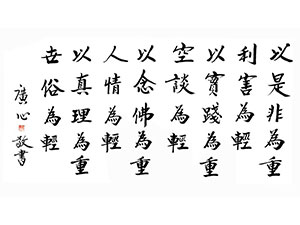 以是非為重
利害為輕
以實踐為重
空談為輕
以念佛為重
人情為輕
以真理為重
世俗為輕
廣心敬書